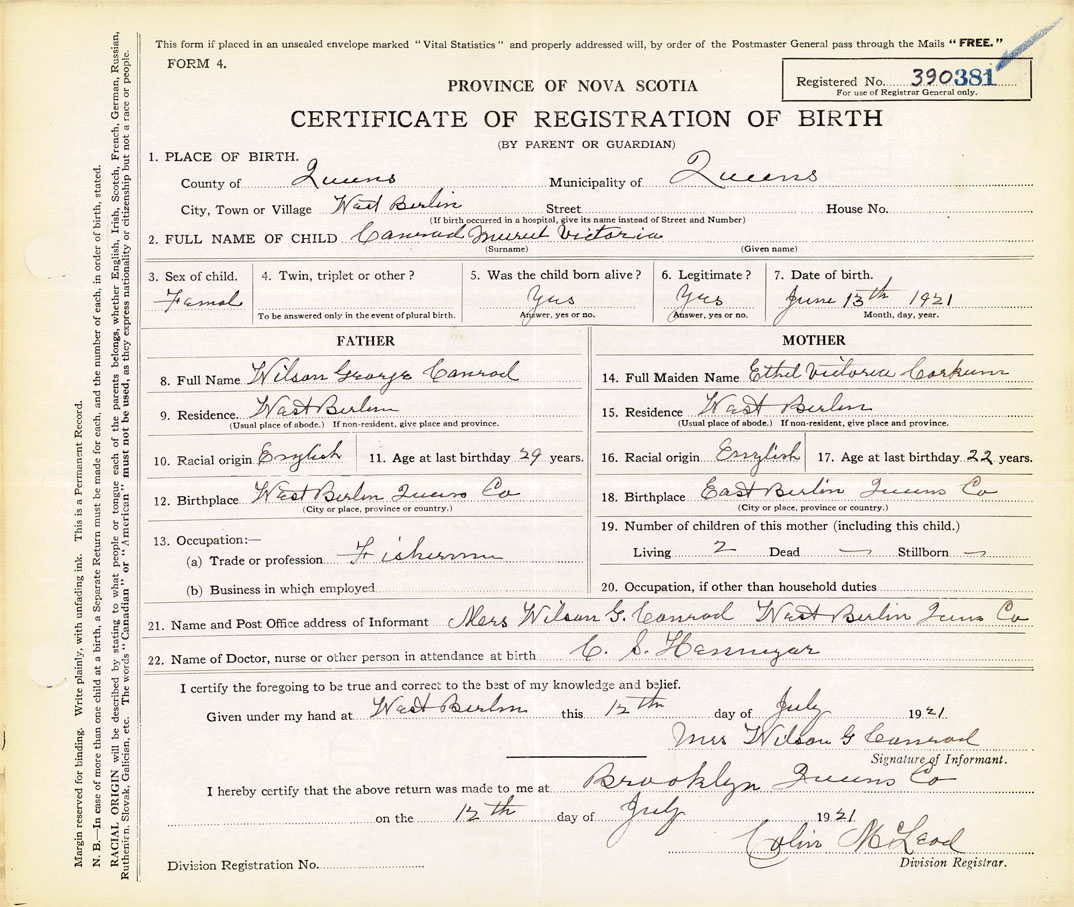 This form if placed in an unsealed envelope marked "Vital Statistics" and properly addressed will, by order of the Postmaster General pass through the Mails "FREE."
FORM 4.
Registered No. 390381
For use of Registrar General only.
PROVINCE OF NOVA SCOTIA
CERTIFICATE OF REGISTRATION OF BIRTH
(BY PARENT OR GUARDIAN)
1. PLACE OF BIRTH.
County of Queens Municipality of Queens
City, Town or Village West Berlin Street House No.
(If birth occurred in a hospital, give its name instead of Street and Number)
2. FULL NAME OF CHILD Conrad Muriel Victoria
(Surname) (Given name)
3. Sex of child. 4. Twin, triplet or other? 5. Was the child born alive? 6. Legitimate? 7. Date of birth.
Femal Yes Yes June 13th 1921
To be answered only in the event of plural birth. Answer, yes or no. Answer, yes or no. Month, day, year.
FATHER
8. Full Name Wilson George Conrad
9. Residence. West Berlin
(Usual place of abode.) If non-resident, give place and province.
10. Racial origin English 11. Age at last birthday 29 years.
12. Birthplace West Berlin Queens Co
(City or place, province or country.)
13. Occupation:—
(a) Trade or profession Fisherman
(b) Business in which employed
MOTHER
14. Full Maiden Name Ethel Victoria Corkum
15. Residence West Berlin
(Usual place of abode.) If non-resident, give place and province.
16. Racial origin English 17. Age at last birthday 22 years.
18. Birthplace East Berlin Queens Co
(City or place, province or country.)
19. Number of children of this mother (including this child.)
Living 2 Dead — Stillborn —
20. Occupation, if other than household duties
21. Name and Post Office address of Informant Mrs Wilson G. Conrad West Berlin Queens Co
22. Name of Doctor, nurse or other person in attendance at birth C. S.
I certify the foregoing to be true and correct to the best of my knowledge and belief.
Given under my hand at West Berlin this 12th day of July 1921
Mrs Wilson G Conrad
Signature of Informant.
I hereby certify that the above return was made to me at Brooklyn Queens Co
on the 12th day of July 1921
Colin McLeod
Division Registrar.
Division Registration No.
Margin reserved for binding. Write plainly, with unfading ink. This is a Permanent Record.
N. B.—In case of more than one child at a birth, a Separate Return must be made for each, and the number of each, in order of birth, stated.
RACIAL ORIGIN will be described by stating to what people or tongue each of the parents belongs, whether English, Irish, Scotch, French, German, Russian,
Ruthenian, Slovak, Galician, etc. The words "Canadian" or "American" must not be used, as they express nationality or citizenship but not a race or people.